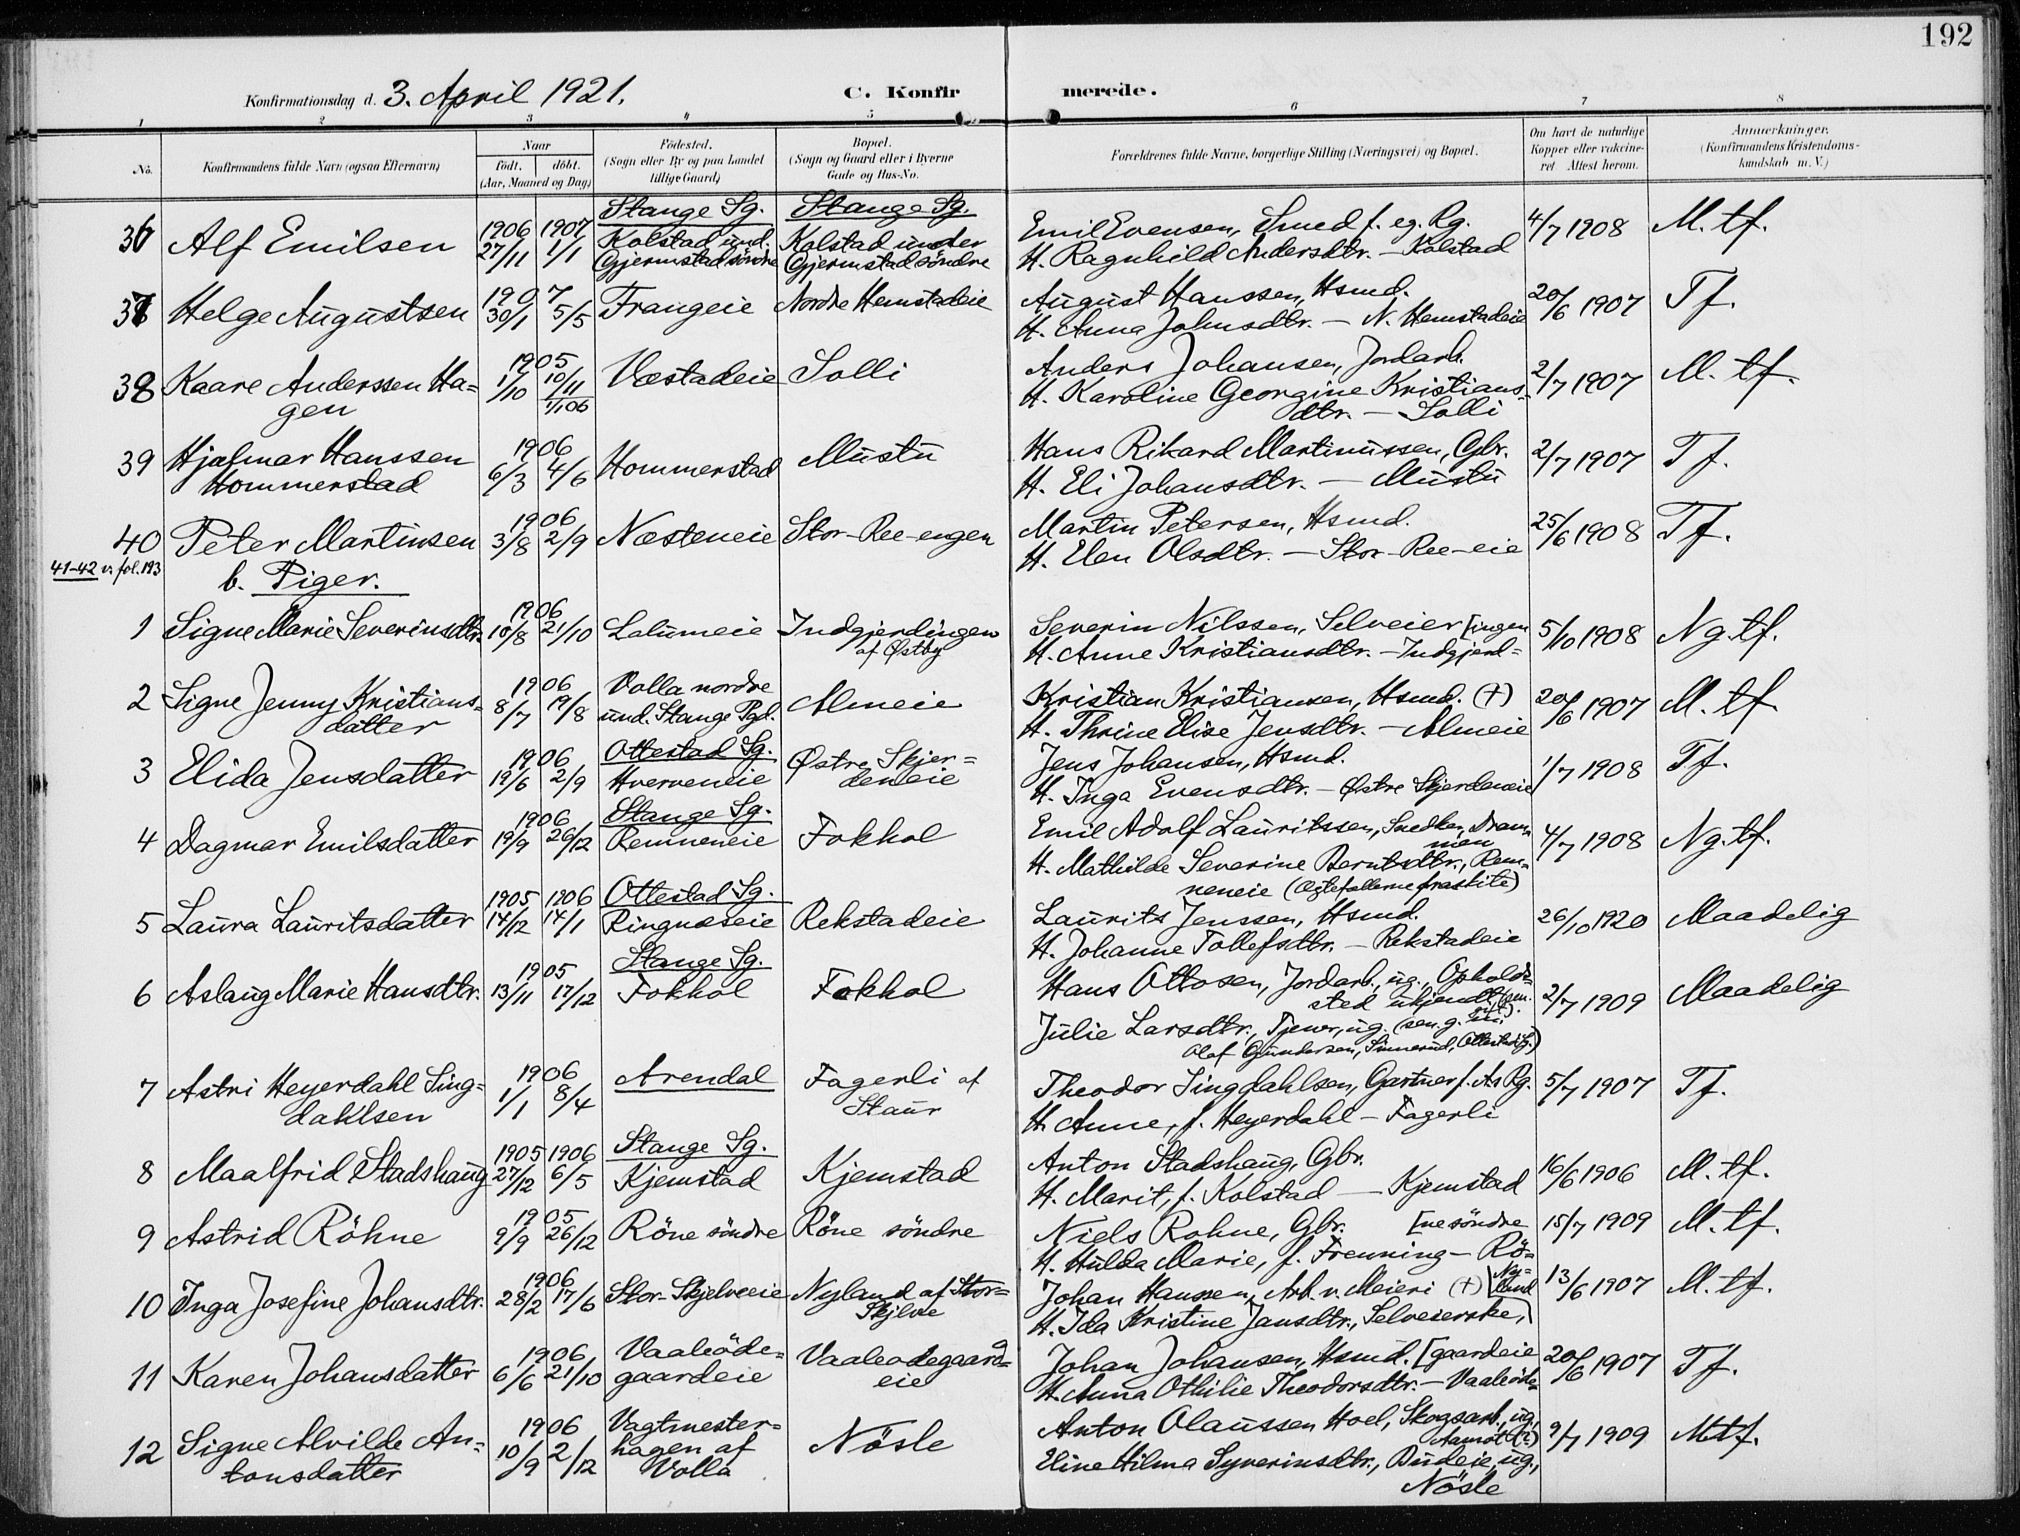 192
Konfirmationsdag d. 3. April 1921.
C. Konfir
merede.
1 2 3 4 5 6 7 8
No. Konfirmandens fulde Navn (ogsaa Efternavn) Naar
født. døbt.
(Aar, Maaned og Dag)
Fødested.
(Sogn eller By og paa Landet
tillige Gaard)
Bopæl.
(Sogn og Gaard eller i Byerne
Gade og Hus-No.
Forældrenes fulde Navne, borgerlige Stilling (Næringsvei) og Bopæl.
Om havt de naturlige
Kopper eller vakcine-
ret Attest herom.
Anmærkninger.
(Konfirmandens Kristendoms-
kundskab m. V.)
36 Alf Emilsen
1906 1907
27/11 1/1
Stange Sg.
Kolstad und.
Gjermstad söndre
Stange Sg.
Kolstad under
Gjermstad söndre
Emil Evensen, Smed f. eg. Rg.
H. Ragnhild Andersdtr. – Kolstad
4/7 1908 M. tf.
37 Helge Augustsen
1907
30/1 5/5
Frangeie
Nordre Hemstadeie
August Hanssen, Hsmd.
H. Anna Johnsdtr. – N. Hemstadeie
20/6 1907 Tf.
38 Kaare Anderssen Ha=
gen
1905
1/10 10/11
1/1 06
Væstadeie
Solli
Anders Johansen, Jordarb.
H. Karoline Georgine Kristians-
dtr. – Solli
2/7 1907 M. tf.
39 Hjalmar Hanssen
Hommerstad
1906
6/3 4/6
Hommerstad
Mustu
Hans Rikard Martinussen, Gbr.
H. Eli Johansdtr. – Mustu
2/7 1907 Tf.
40 Peter Martinsen
1906
3/8 2/9
Næsteneie
Stor-Ree-engen
Martin Petersen, Hsmd.
H. Elen Olsdtr. – Stor-Ree-eie
25/6 1908 Tf.
41-42 v. fol. 193
b. Piger.
1 Signe Marie Severinsdtr.
1906
10/8 21/10
Lalumeie
Indgjerdingen
af Østby
Severin Nilssen, Selveier [ingen
H. Anne Kristiansdtr. – Indgjerd=
5/10 1908 Ng. tf.
2 Signe Jenny Kristians-
datter
1906
8/7 19/8
Volla nordre
und. Stange Pgd.
Almeie
Kristian Kristiansen, Hsmd. (+)
H. Thrine Elise Jensdtr. – Almeie
20/6 1907 M. tf.
3 Elida Jensdatter
1906
19/6 2/9
Ottestad Sg.
Hverveneie
Østre Skjer=
deneie
Jens Johansen, Hsmd.
H. Inga Evensdtr. – Østre Skjerdeneie
1/7 1908 Tf.
4 Dagmar Emilsdatter
1906
19/9 26/12
Stange Sg.
Remneneie
Fokhol
Emil Adolf Lauritssen, Snedker, Dram-
men
H. Mathilde Severine Berntsdtr., Rem=
neneie (Egtefællerne fraskilte)
4/7 1908 Ng. tf.
5 Laura Lauritsdatter
1905 1906
14/12 14/1
Ottestad Sg.
Ringnæseie
Rekstadeie
Laurits Jenssen, Hsmd.
H. Johanne Tollefsdtr. – Rekstadeie
26/10 1920 Maadelig
6 Aslaug Marie Hansdtr.
1905
13/11 17/12
Stange Sg.
Fokhol
Fokhol
Hans Ottosen, Jordarb., ug., Opholds-
sted ukjendt
Julie Larsdtr., Tjener, ug. (sen. g. m.
Olaf Gundersen, Sinnerud, Ottestad Sg.)
2/7 1909 Maadelig
7 Astri Heyerdahl Sing=
dahlsen
1906
1/1 8/4
Arendal
Fagerli af
Staur
Theodor Singdahlsen, Gartner f. As Rg.
H. Anne, f. Heyerdahl – Fagerli
5/7 1907 Tf.
8 Maalfrid Stadshaug
1905 1906
27/12 6/5
Stange Sg.
Kjemstad
Kjemstad
Anton Stadshaug, Gbr.
H. Marit, f. Kolstad – Kjemstad
16/6 1906 M. tf.
9 Astrid Röhne
1905
9/9 26/12
Röne söndre
Röne söndre
Niels Rohne, Gbr. [ne söndre
H. Hulda Marie, f. Frenning – Rö=
15/7 1909 M. tf.
10 Inga Josefine Johansdtr.
1906
28/2 17/6
Stor-Skjelveeie
Nyland af Stor=
Skjelve
Johan Hanssen, Arb. v. Meieri (+) [Ny=
land
H. Ida Kristine Jansdtr., Selveierske,
13/6 1907 M. tf.
11 Karen Johansdatter
1906
6/6 21/10
Vaaleöde=
gaardeie
Vaaleodegaard=
eie
Johan Johansen, Hsmd. [gaardeie
H. Anna Othilie Theodorsdtr. – Vaaleöde=
20/6 1907 Tf.
12 Signe Alvilde An=
tonsdatter
1906
10/9 2/12
Vagtmester=
hagen af
Volla
Nösle
Anton Olaussen Hoel, Skogsarb., ug.,
Aamot (?)
Eline Hilma Syverinsdtr., Budeie, ug.,
Nösle
9/7 1909 Mtf.